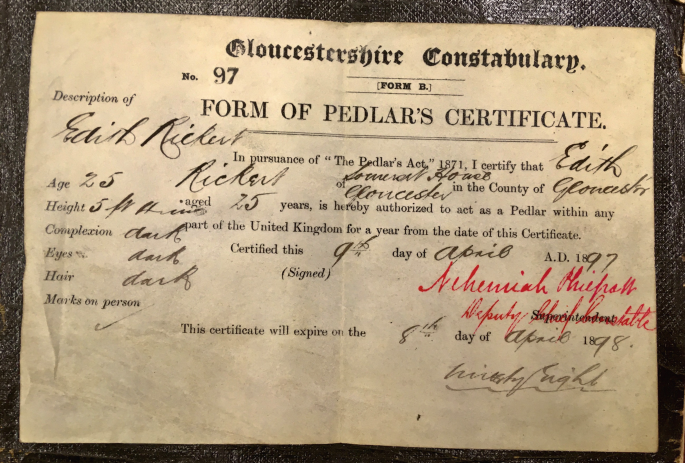 Gloucestershire Constabulary.
No. 97
[FORM B.]
Description of
FORM OF PEDLAR'S CERTIFICATE.
Edith Rickert
In pursuance of "The Pedlar's Act," 1871, I certify that Edith
Age 25 Rickert of Somerset House Gloucester in the County of Gloucester
Height 5 ft aged 25 years, is hereby authorized to act as a Pedlar within any
Complexion dark part of the United Kingdom for a year from the date of this Certificate.
Eyes dark Certified this 9th day of April A.D. 1897
Hair dark (Signed) Nehemiah Philpott
Marks on person Deputy Chief Constable Superintendent
This certificate will expire on the 8th day of April 1898.
ninety Eight